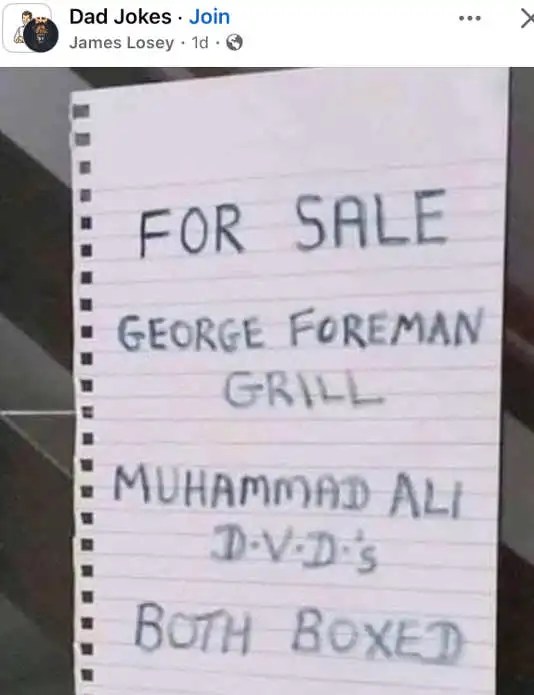 Dad Jokes · Join
James Losey · 1d ·
FOR SALE
GEORGE FOREMAN
GRILL
MUHAMMAD ALI
D.V.D.'s
BOTH BOXED